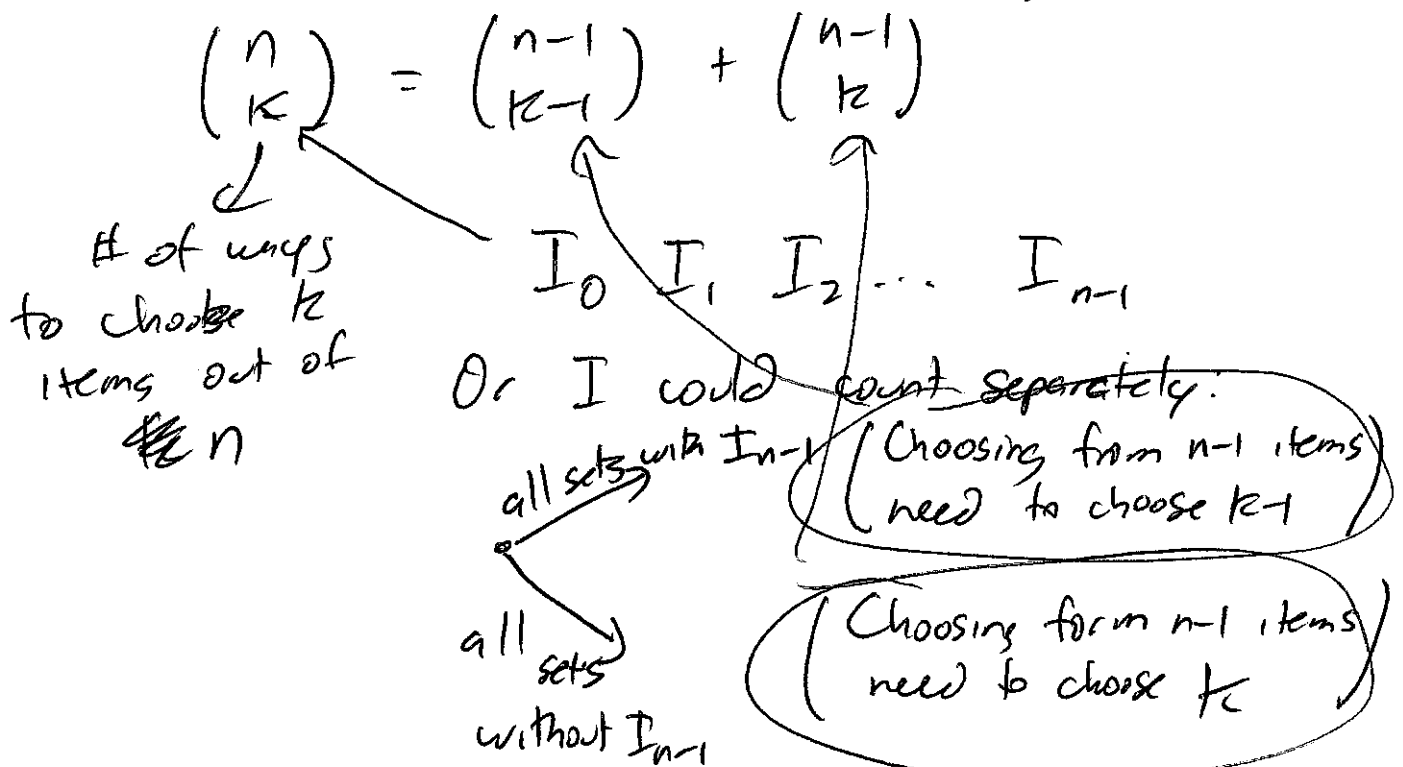 (n k) = (n-1 k-1) + (n-1 k)
# of ways
to choose k
items out of
n
I₀ I₁ I₂ ... Iₙ₋₁
Or I could count separately:
all sets with Iₙ₋₁
(Choosing from n-1 items
need to choose k-1)
all sets
without Iₙ₋₁
(Choosing form n-1 items
need to choose k)